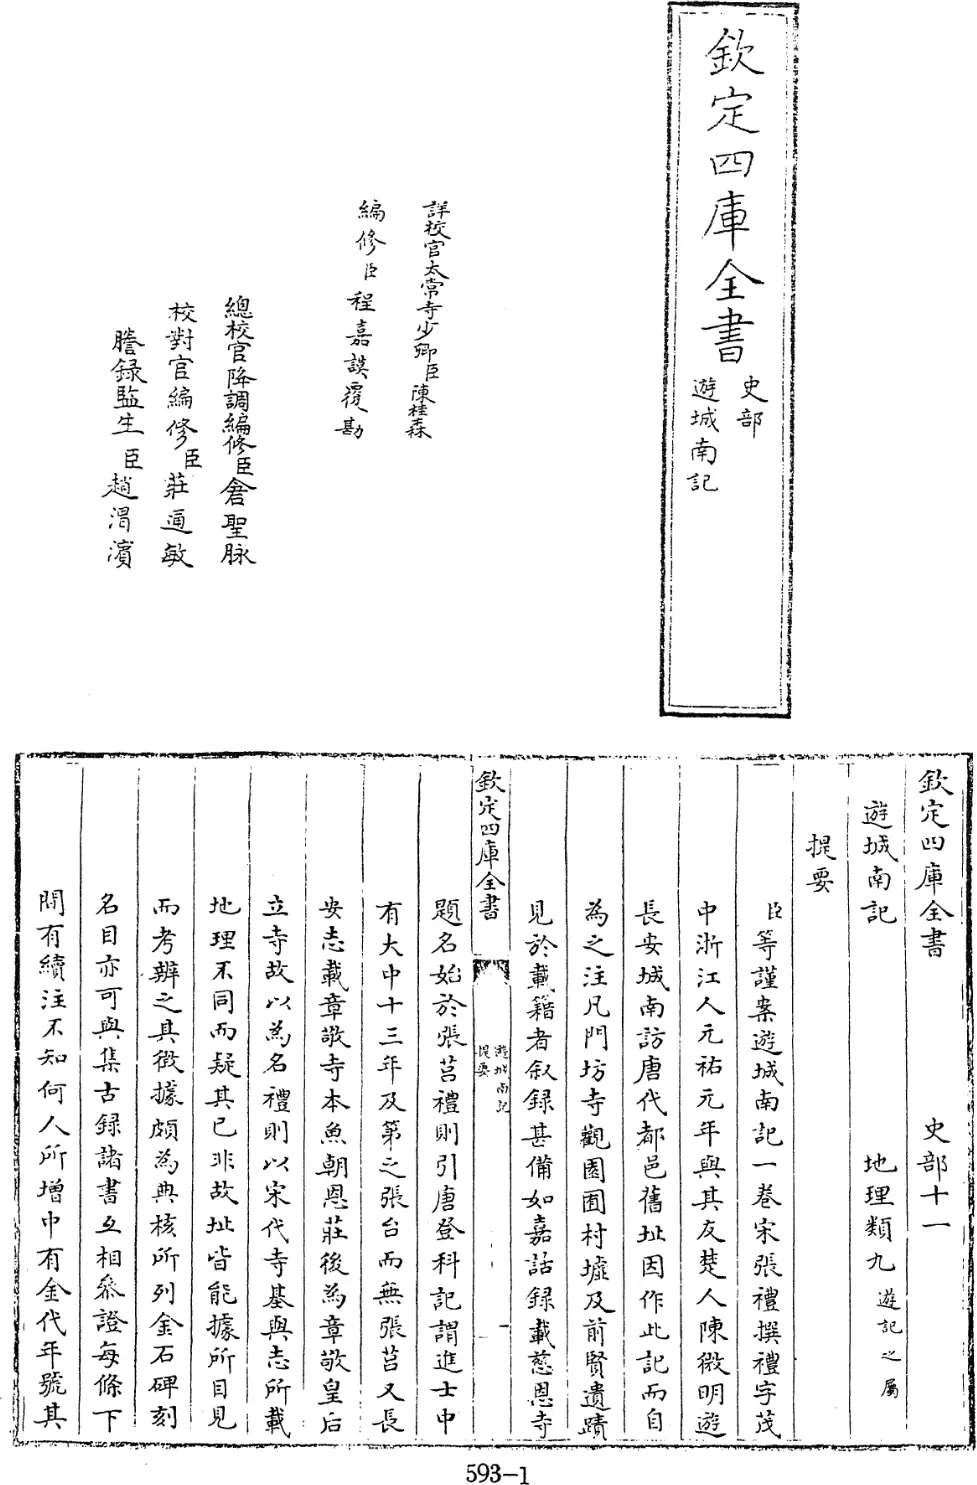 欽定四庫全書
史部
遊城南記
詳校官太常寺少卿臣陳桂森
編修臣程嘉謨覆勘
總校官降調編修臣倉聖脉
校對官編修臣莊通敏
謄錄監生臣趙渭濱
欽定四庫全書 史部十一
遊城南記 地理類九 遊記之屬
提要
臣等謹案遊城南記一卷宋張禮撰禮字茂
中浙江人元祐元年與其友楚人陳微明遊
長安城南訪唐代都邑舊址因作此記而自
為之注凡門坊寺觀園囿村墟及前賢遺蹟
見於載籍者叙録甚備如嘉話録載慈恩寺
欽定四庫全書
遊城南記
提要
題名始於張莒禮則引唐登科記謂進士中
有大中十三年及第之張台而無張莒又長
安志載章敬寺本魚朝恩莊後為章敬皇后
立寺故以為名禮則以宋代寺基與志所載
地理不同而疑其已非故址皆能據所目見
而考辨之其徴據頗為典核所列金石碑刻
名目亦可與集古録諸書互相叅證每條下
間有續注不知何人所增中有金代年號其
593-1